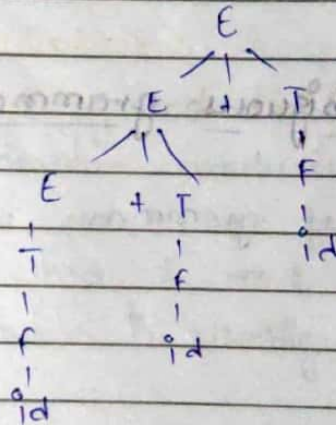 E
E + T
E + T F
T F id
F id
id